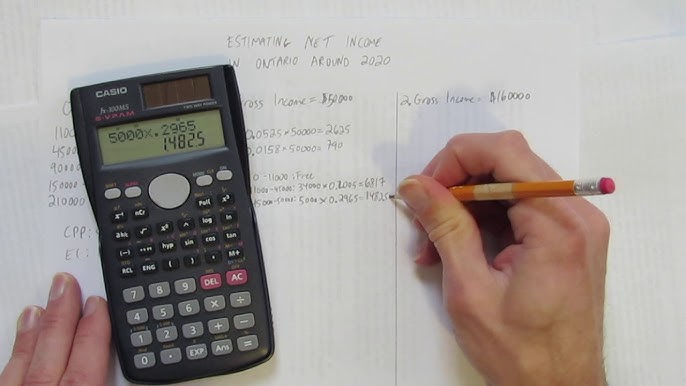 ESTIMATING NET INCOME
IN ONTARIO AROUND 2020
Gross Income = $50000
0.0525 × 50000 = 2625
0.0158 × 50000 = 790
0-11000: Free
11000-45000: 34000 × 0.2005 = 6817
45000-50000: 5000 × 0.2965 = 1482.5
2. Gross Income = $160000
1100
4500
9000
150000
210000
CPP:
EI:
CASIO
fx-300MS
S-V.P.A.M.
TWO WAY POWER
5000×.2965
1482.5
SHIFT ALPHA MODE ON
x⁻¹ nCr Pol( x³
√ x² ^ log ln
hyp sin cos tan
RCL ENG ( ) , M+
7 8 9 DEL AC
4 5 6 × ÷
1 2 3 + −
0 . EXP Ans =